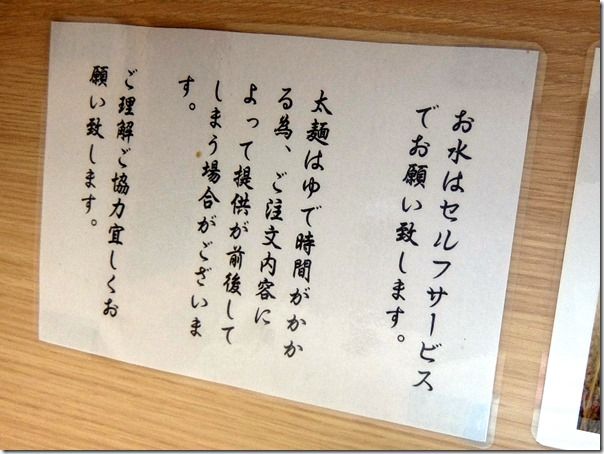 お水はセルフサービス
でお願い致します。
太麺はゆで時間がかか
る為、ご注文内容に
よって提供が前後して
しまう場合がございま
す。
ご理解ご協力宜しくお
願い致します。